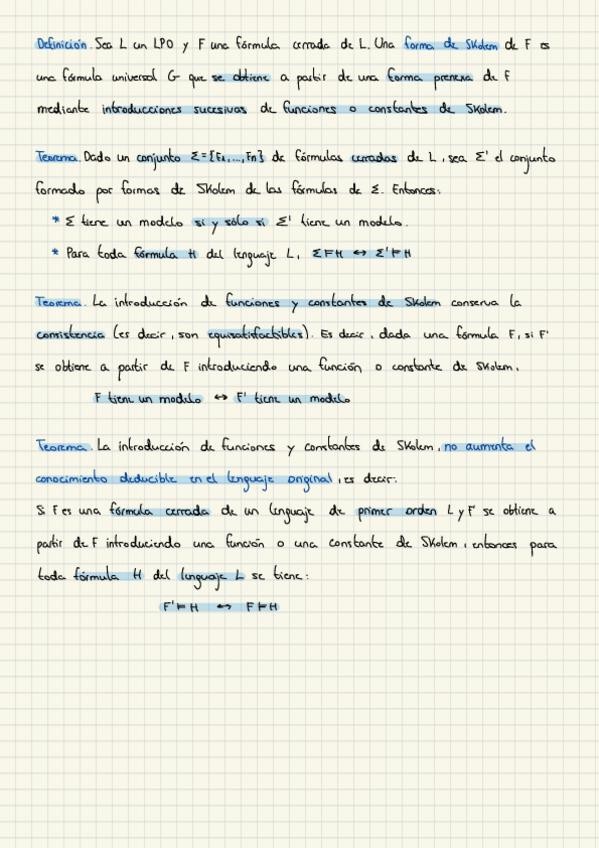 Definición. Sea L un LPO y F una fórmula cerrada de L. Una forma de Skolem de F es
una fórmula universal G que se obtiene a partir de una forma prenexa de F
mediante introducciones sucesivas de funciones o constantes de Skolem.
Teorema. Dado un conjunto Σ={F₁,...,Fn} de fórmulas cerradas de L, sea Σ' el conjunto
formado por formas de Skolem de las fórmulas de Σ. Entonces:
* Σ tiene un modelo si y sólo si Σ' tiene un modelo.
* Para toda fórmula H del lenguaje L, Σ⊨H ↔ Σ'⊨H
Teorema. La introducción de funciones y constantes de Skolem conserva la
consistencia (es decir, son equisatisfactibles). Es decir, dada una fórmula F, si F'
se obtiene a partir de F introduciendo una función o constante de Skolem,
F tiene un modelo ↔ F' tiene un modelo
Teorema. La introducción de funciones y constantes de Skolem, no aumenta el
conocimiento deducible en el lenguaje original, es decir.
Si F es una fórmula cerrada de un lenguaje de primer orden L y F' se obtiene a
partir de F introduciendo una función o una constante de Skolem, entonces para
toda fórmula H del lenguaje L se tiene:
F'⊨H ↔ F⊨H